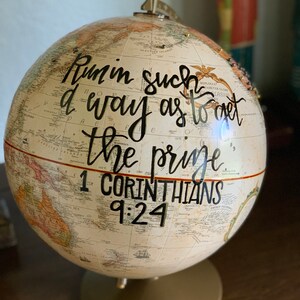 Run in such
a way as to get
the prize
1 CORINTHIANS
9:24